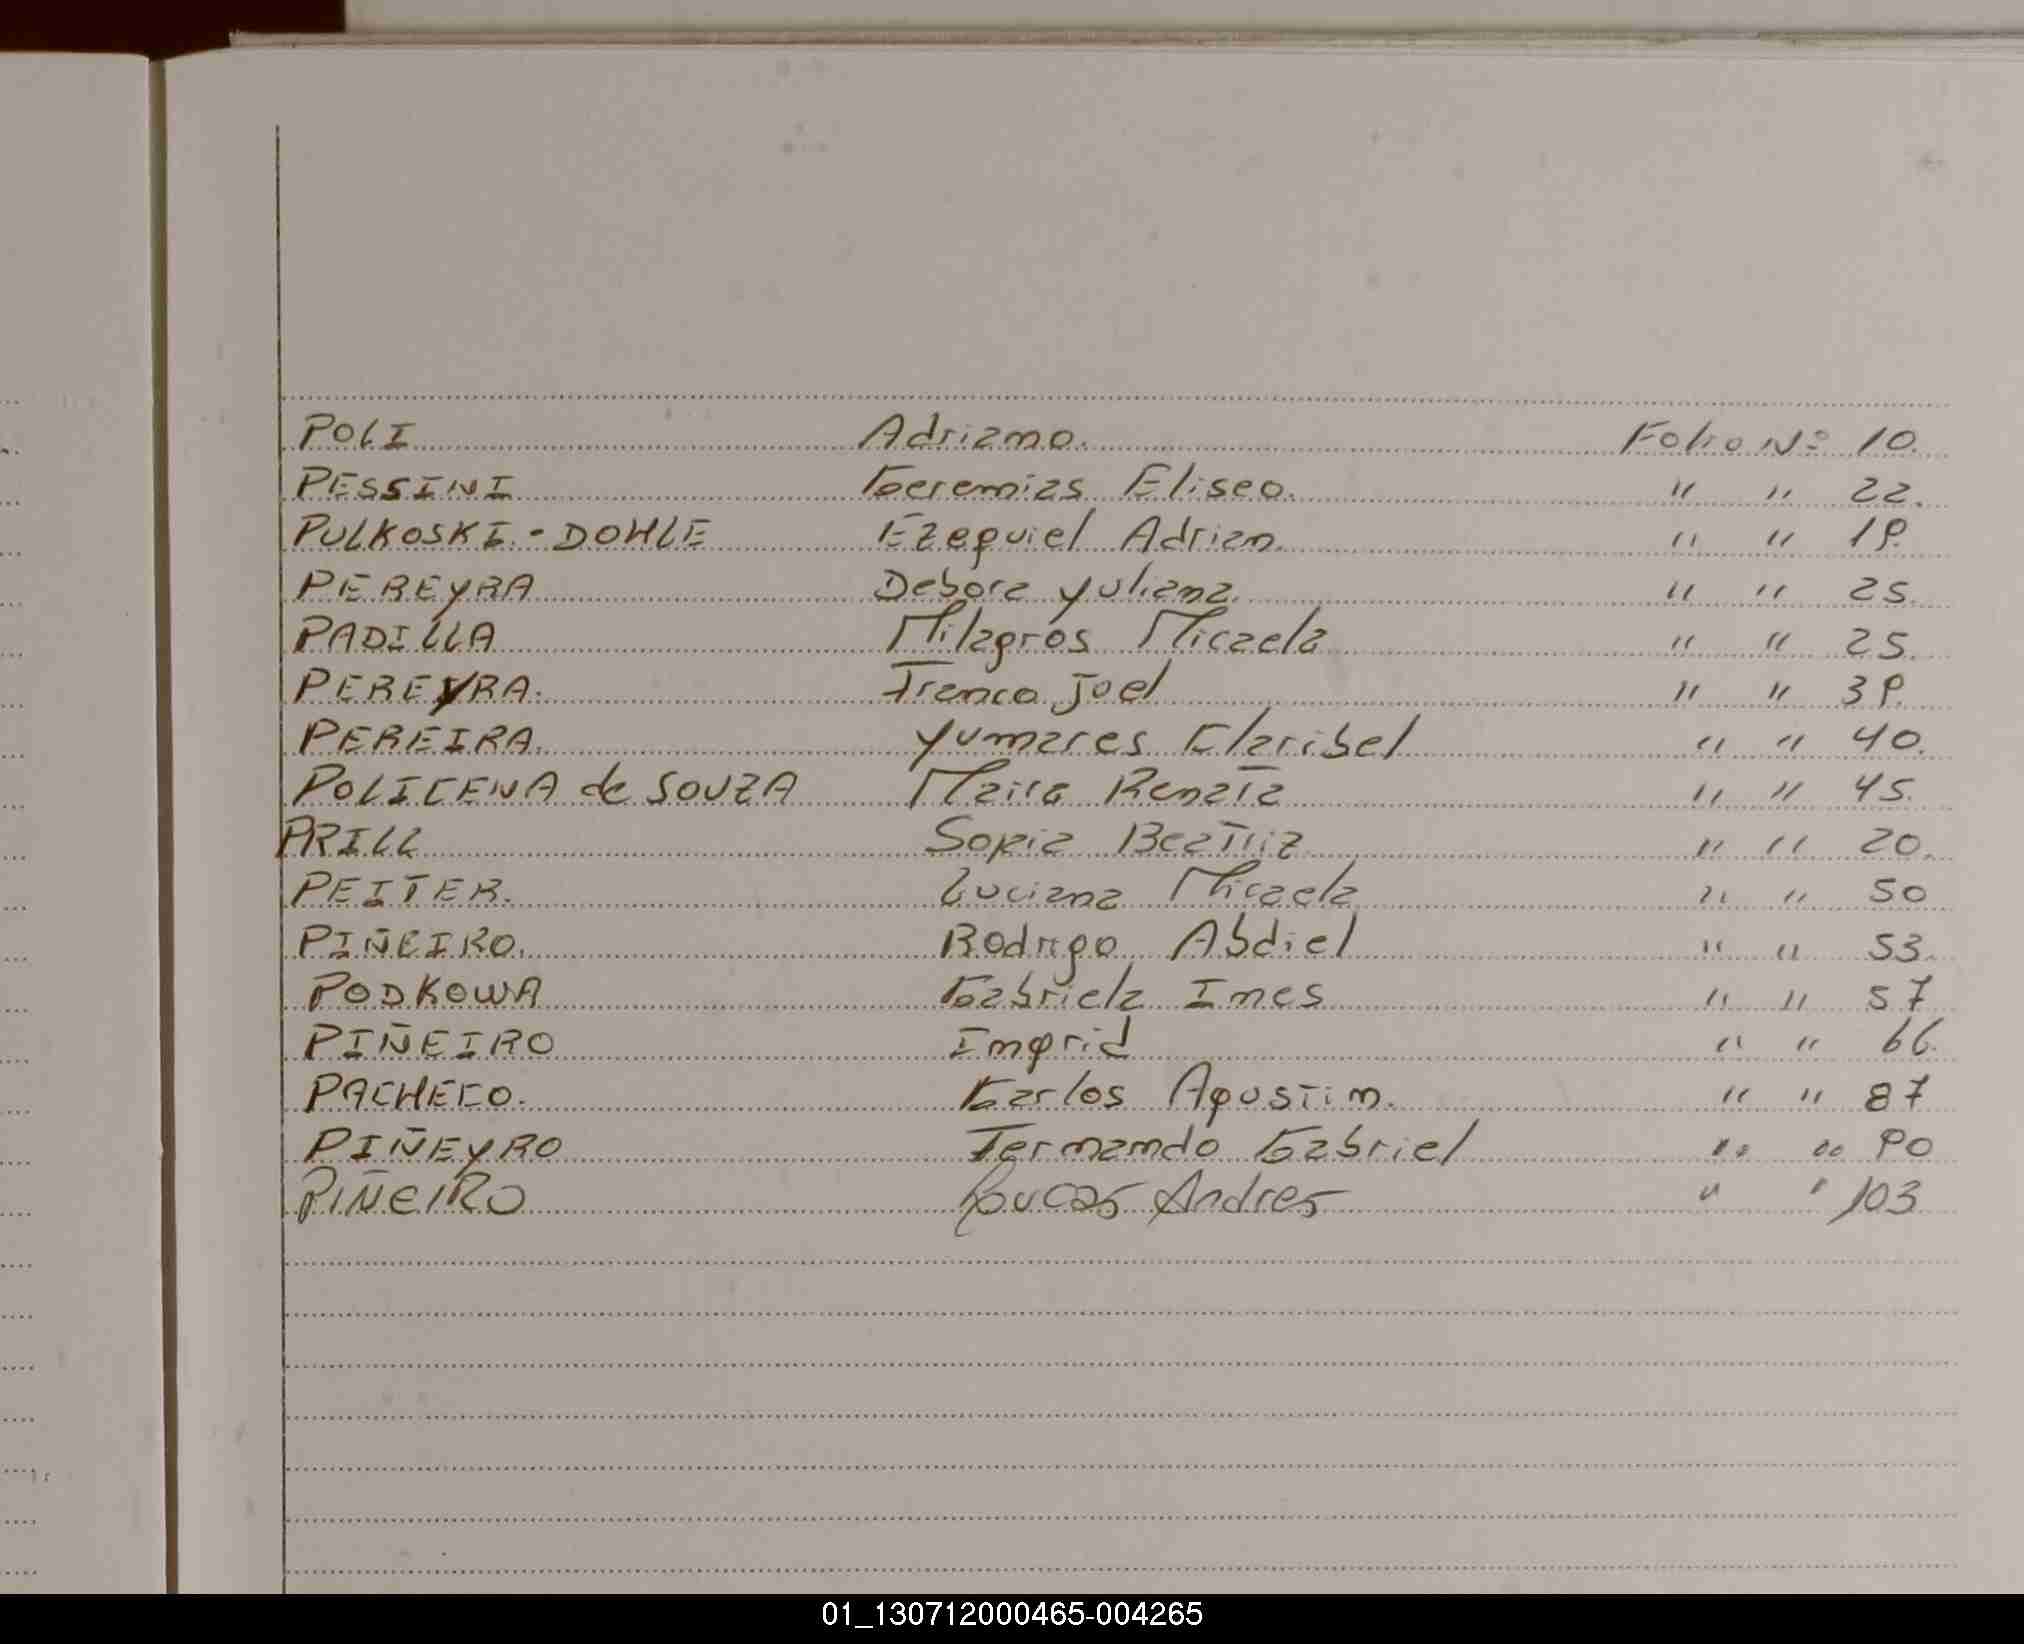 POLI Adriano. Folio Nº 10.
PESSINI Geremias Eliseo. " " 22.
PULKOSKI - DOHLE Ezequiel Adrian. " " 19.
PEREYRA Debora Yuliana. " " 25.
PADILLA Milagros Micaela " " 25.
PEREYRA. Franco Joel " " 39.
PEREIRA. Yumares Claribel " " 40.
POLICENA de SOUZA Maira Renata " " 45.
PRILL Sofia Beatriz " " 20.
PEITER. Luciana Micaela " " 50
PIÑEIRO. Rodrigo Abdiel " " 53.
PODKOWA Gabriela Ines " " 57
PIÑEIRO Ingrid " " 66.
PACHECO. Carlos Agustin. " " 87
PIÑEYRO Fernando Gabriel " " 90
PIÑEIRO Loucas Andres " " 103
01_130712000465-004265